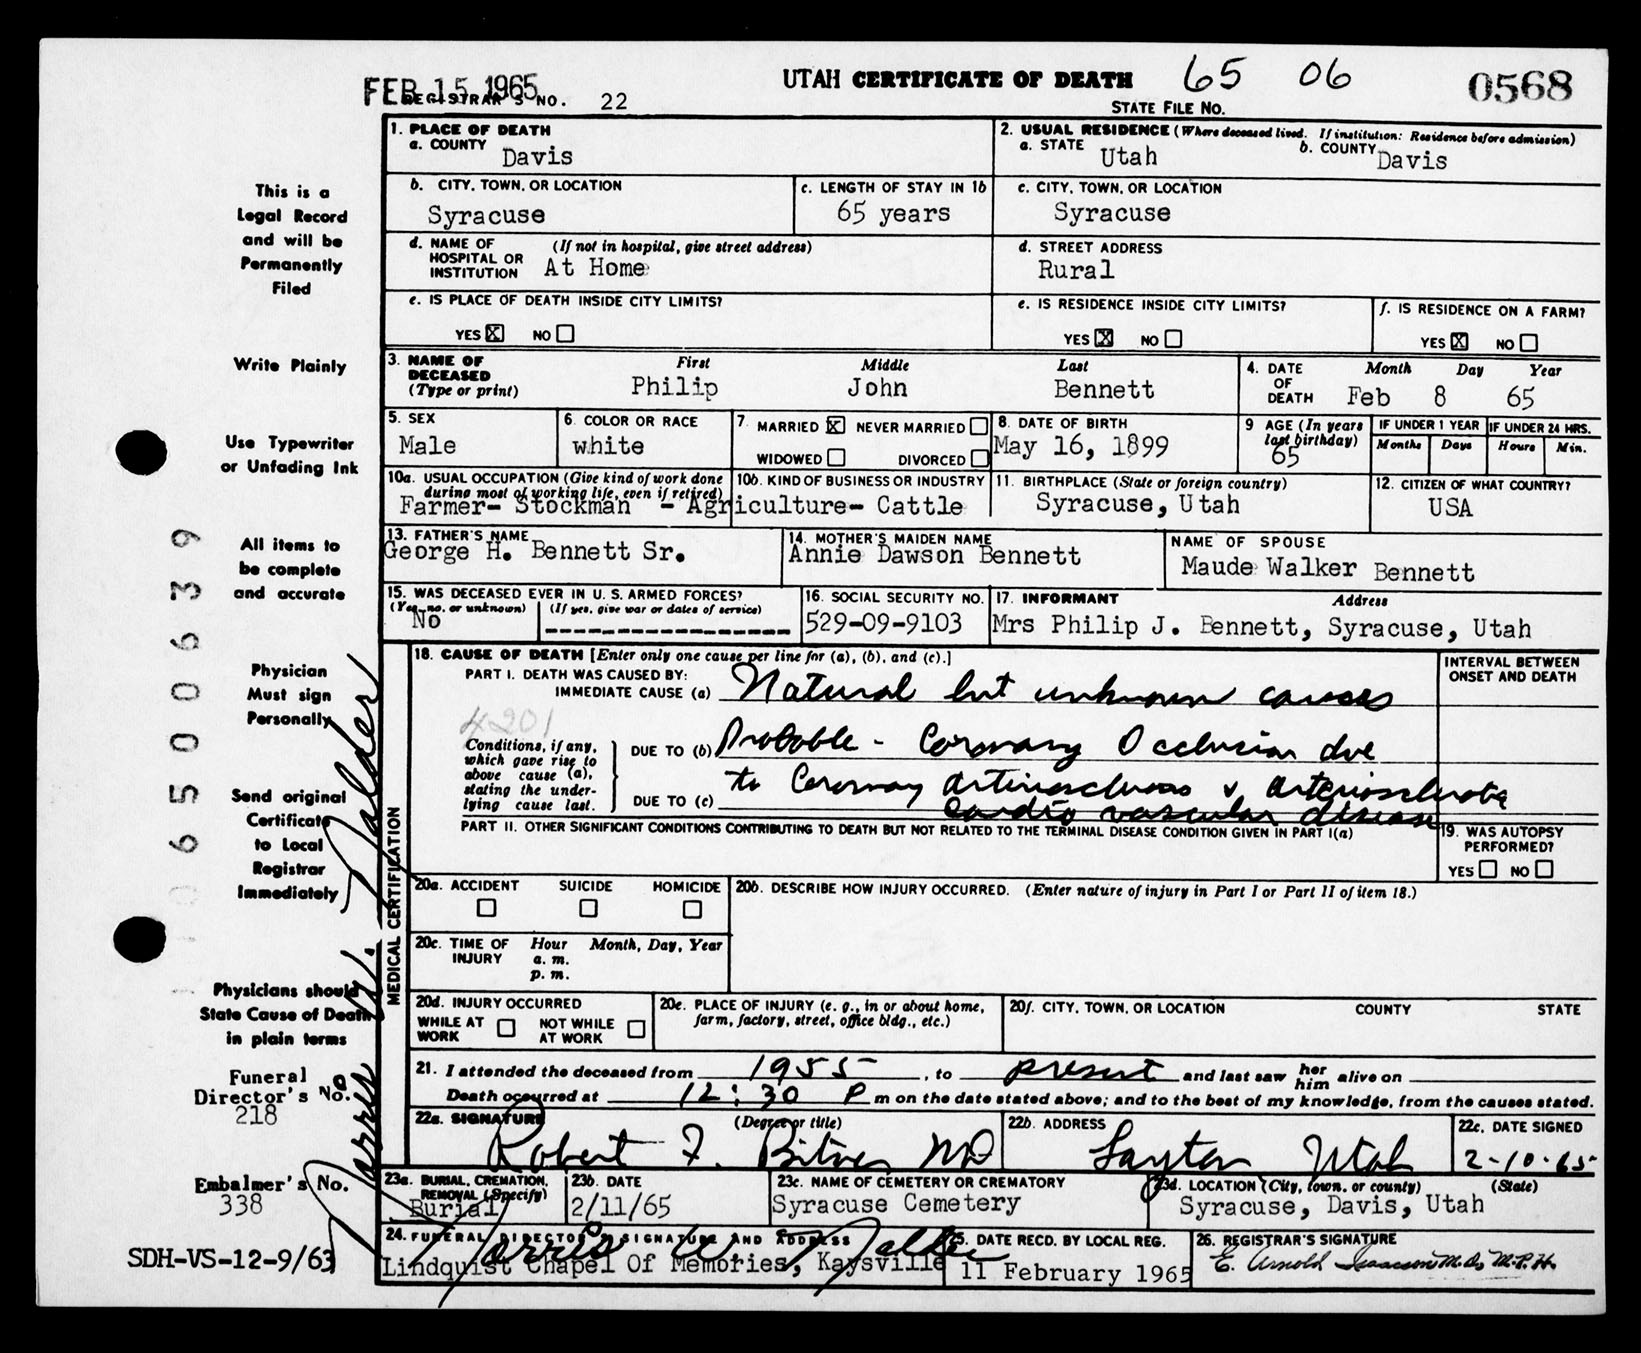 FEB 15 1965
UTAH CERTIFICATE OF DEATH 65 06 0568
REGISTRAR'S NO. 22
STATE FILE NO.
1. PLACE OF DEATH
a. COUNTY Davis
2. USUAL RESIDENCE (Where deceased lived. If institution: Residence before admission)
a. STATE Utah b. COUNTY Davis
b. CITY, TOWN, OR LOCATION
Syracuse
c. LENGTH OF STAY IN 1b
65 years
c. CITY, TOWN, OR LOCATION
Syracuse
d. NAME OF HOSPITAL OR INSTITUTION (If not in hospital, give street address)
At Home
d. STREET ADDRESS
Rural
e. IS PLACE OF DEATH INSIDE CITY LIMITS?
YES X NO
e. IS RESIDENCE INSIDE CITY LIMITS?
YES X NO
f. IS RESIDENCE ON A FARM?
YES X NO
3. NAME OF DECEASED (Type or print)
First Middle Last
Philip John Bennett
4. DATE OF DEATH
Month Day Year
Feb 8 65
5. SEX
Male
6. COLOR OR RACE
white
7. MARRIED X NEVER MARRIED
WIDOWED DIVORCED
8. DATE OF BIRTH
May 16, 1899
9 AGE (In years last birthday)
65
IF UNDER 1 YEAR
Months Days
IF UNDER 24 HRS.
Hours Min.
10a. USUAL OCCUPATION (Give kind of work done during most of working life, even if retired)
10b. KIND OF BUSINESS OR INDUSTRY
Farmer- Stockman - Agriculture- Cattle
11. BIRTHPLACE (State or foreign country)
Syracuse, Utah
12. CITIZEN OF WHAT COUNTRY?
USA
13. FATHER'S NAME
George H. Bennett Sr.
14. MOTHER'S MAIDEN NAME
Annie Dawson Bennett
NAME OF SPOUSE
Maude Walker Bennett
15. WAS DECEASED EVER IN U. S. ARMED FORCES?
(Yes, no, or unknown) (If yes, give war or dates of service)
No
16. SOCIAL SECURITY NO.
529-09-9103
17. INFORMANT Address
Mrs Philip J. Bennett, Syracuse, Utah
18. CAUSE OF DEATH [Enter only one cause per line for (a), (b), and (c).]
INTERVAL BETWEEN ONSET AND DEATH
PART I. DEATH WAS CAUSED BY:
IMMEDIATE CAUSE (a) Natural but unknown causes
4201
Conditions, if any, which gave rise to above cause (a), stating the underlying cause last.
DUE TO (b) Probable - Coronary Occlusion due
to Coronary arteriosclerosis & arteriosclerotic
DUE TO (c) cardio vascular disease
PART II. OTHER SIGNIFICANT CONDITIONS CONTRIBUTING TO DEATH BUT NOT RELATED TO THE TERMINAL DISEASE CONDITION GIVEN IN PART I(a)
19. WAS AUTOPSY PERFORMED?
YES NO
20a. ACCIDENT SUICIDE HOMICIDE
20b. DESCRIBE HOW INJURY OCCURRED. (Enter nature of injury in Part I or Part II of item 18.)
20c. TIME OF INJURY Hour Month, Day, Year
a. m.
p. m.
20d. INJURY OCCURRED
WHILE AT WORK NOT WHILE AT WORK
20e. PLACE OF INJURY (e. g., in or about home, farm, factory, street, office bldg., etc.)
20f. CITY, TOWN, OR LOCATION COUNTY STATE
21. I attended the deceased from 1955, to present and last saw her him alive on
Death occurred at 12:30 P m on the date stated above; and to the best of my knowledge, from the causes stated.
22a. SIGNATURE (Degree or title)
Robert F. Bitner MD
22b. ADDRESS
Layton Utah
22c. DATE SIGNED
2-10-65
23a. BURIAL, CREMATION, REMOVAL (Specify)
Burial
23b. DATE
2/11/65
23c. NAME OF CEMETERY OR CREMATORY
Syracuse Cemetery
23d. LOCATION (City, town, or county) (State)
Syracuse, Davis, Utah
24. FUNERAL DIRECTOR'S SIGNATURE AND ADDRESS
Lindquist Chapel Of Memories, Kaysville
25. DATE RECD. BY LOCAL REG.
11 February 1965
26. REGISTRAR'S SIGNATURE
E. Arnold Isaacson M.D., M.P.H.
MEDICAL CERTIFICATION
This is a
Legal Record
and will be
Permanently
Filed
Write Plainly
Use Typewriter
or Unfading Ink
All items to
be complete
and accurate
Physician
Must sign
Personally
Send original
Certificate
to Local
Registrar
Immediately
Physicians should
State Cause of Death
in plain terms
Funeral
Director's No.
218
Embalmer's No.
338
SDH-VS-12-9/63
6500639